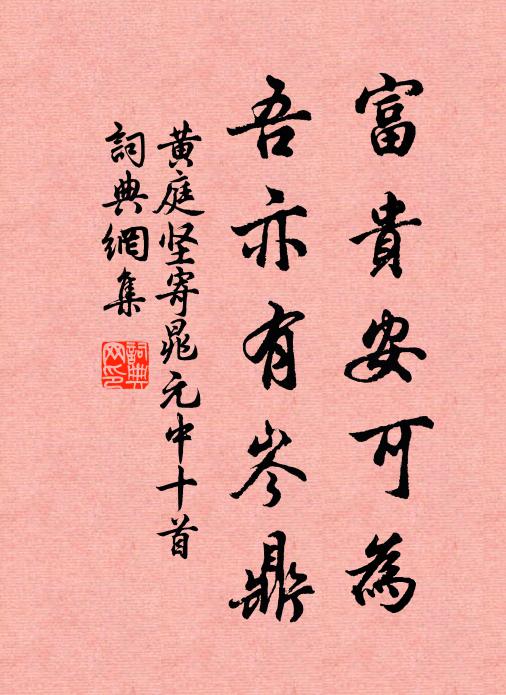 富貴安可為
吾亦有岑鼎
黄庭坚寄晁元中十首
詞典網集
詞典網印